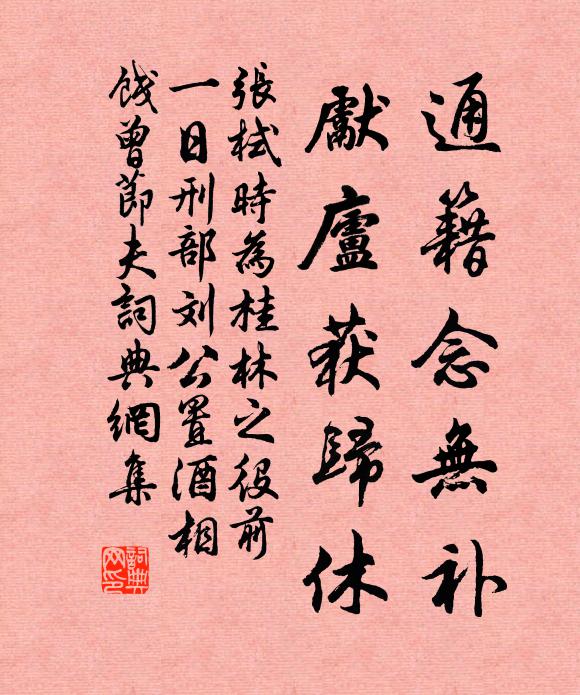 通籍念無补
獻廬获歸休
張栻時為桂林之役前
一日刑部刘公置酒相
饯曾節夫詞典網集
詞典网印